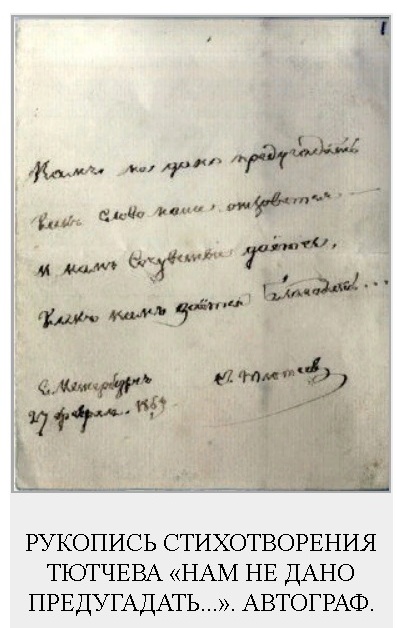 1
Намъ не дано предугадать
Какъ слово наше отзовется —
И намъ Сочувствіе даётся,
Какъ намъ даётся Благодать...
С. Петербургъ Ѳ. Тютчев
27 февраля. 1869
РУКОПИСЬ СТИХОТВОРЕНИЯ
ТЮТЧЕВА «НАМ НЕ ДАНО
ПРЕДУГАДАТЬ...». АВТОГРАФ.